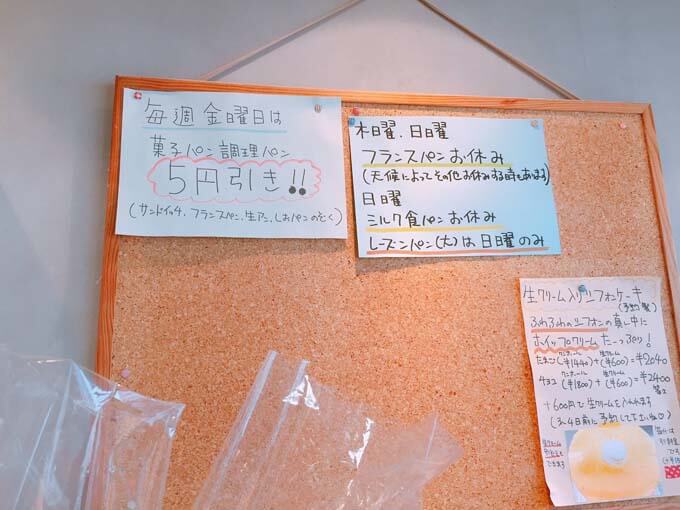 毎週金曜日は
菓子パン調理パン
5円引き!!
(サンドイッチ、フランスパン、生アン、しおパンのぞく)
木曜、日曜
フランスパンお休み
(天候によってその他お休みする時もあります)
日曜
ミルク食パンお休み
レーズンパン(大)は日曜のみ
生クリーム入りシフォンケーキ
(予約制)
ふわふわのシフォンの真ん中に
ホイップクリームたーっぷり!
たまご(¥1440)+(¥600)=¥2040
チョコ(¥1800)+(¥600)=¥2400
+600円で生クリームを入れれます
(3、4日前に予約して下さいね♡)
できます